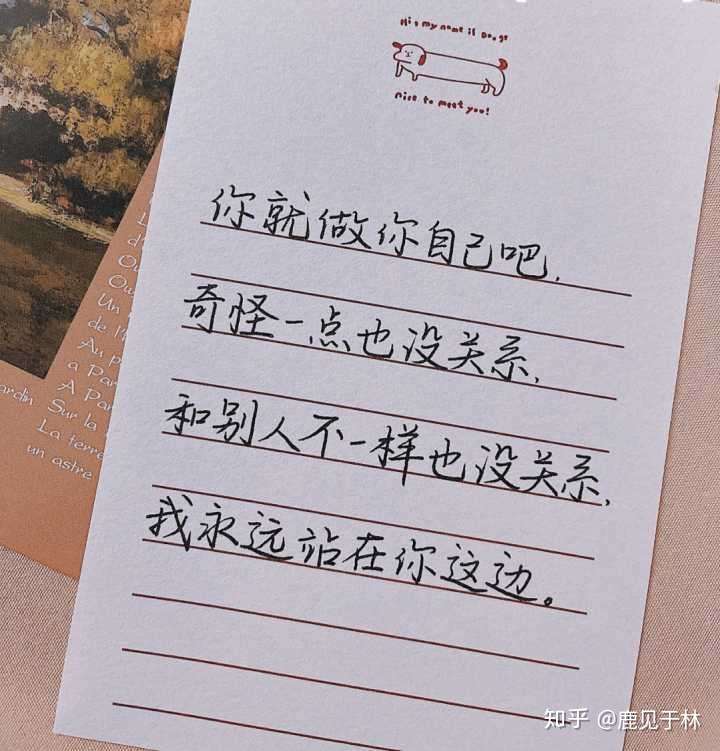 Hi, my name is Dooge
nice to meet you!
你就做你自己吧,
奇怪一点也没关系,
和别人不一样也没关系,
我永远站在你这边。
Un
de l'
Au p
a Par
A Par
ardin Sur la
La terre
un astre
知乎 @鹿见于林